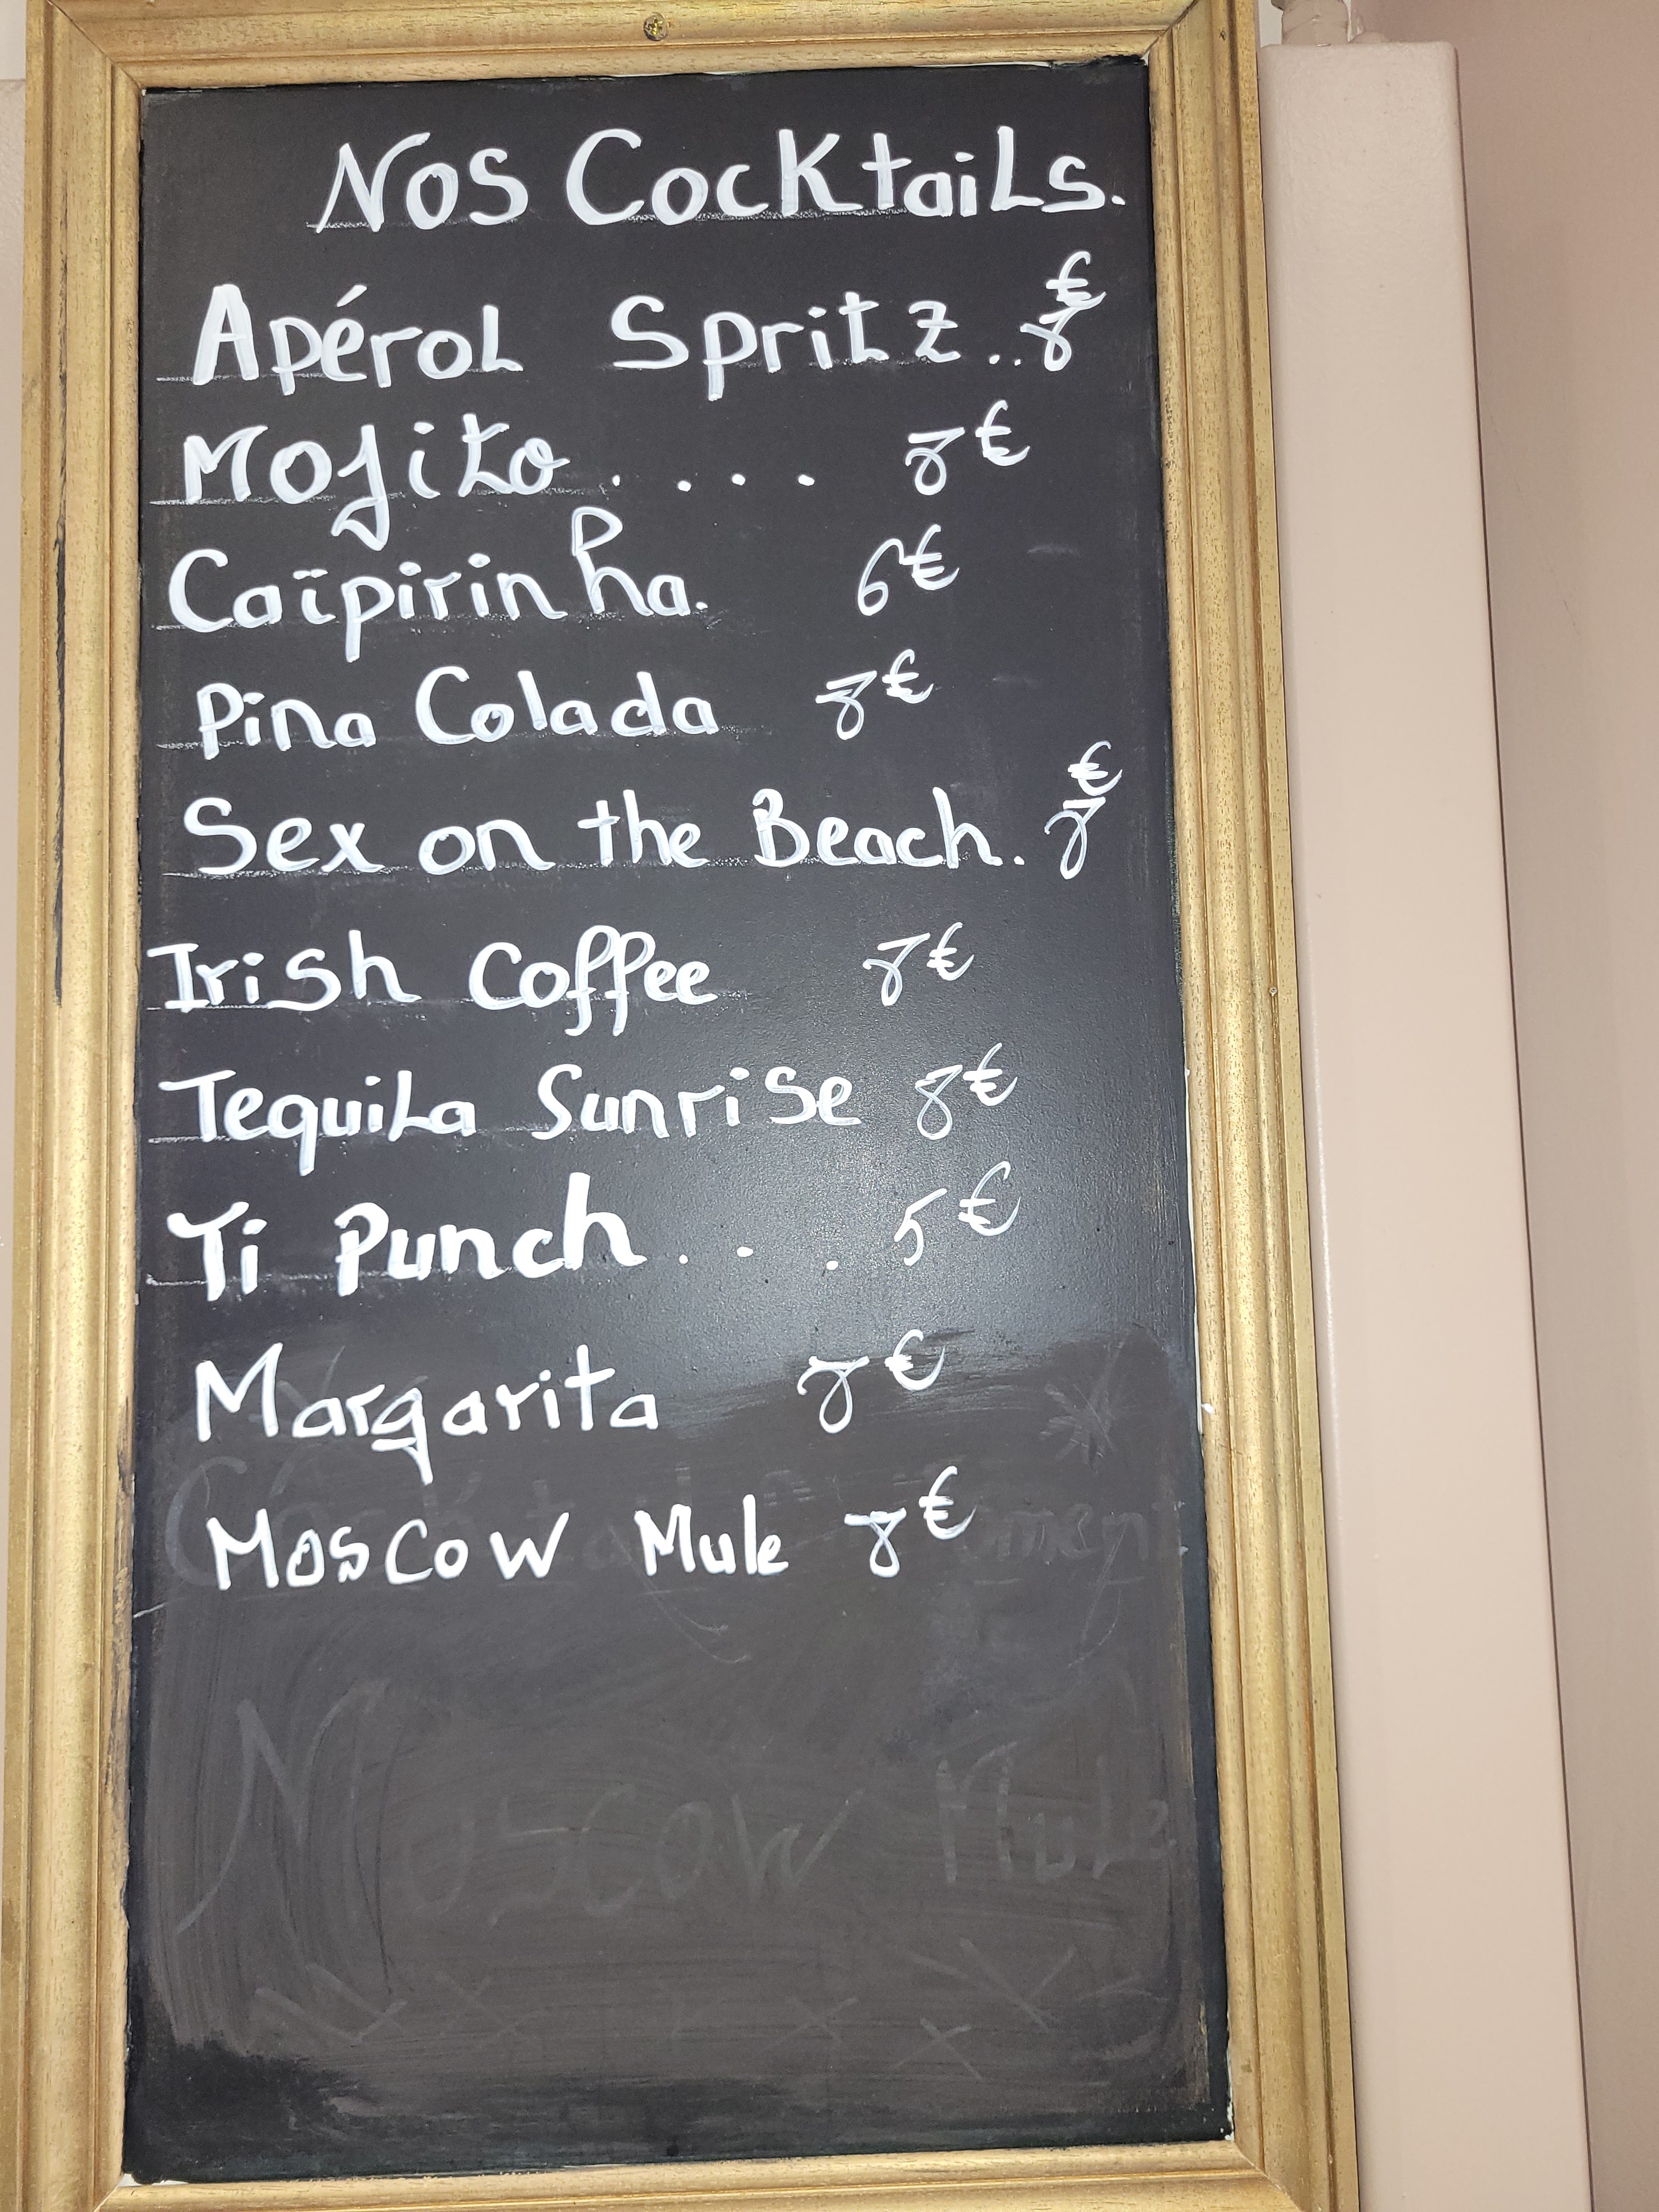 Nos Cocktails.
Apérol Spritz .. 8€
Mojito . . . . 8€
Caïpirinha. 6€
Pina Colada 8€
Sex on the Beach. 8€
Irish Coffee 8€
Tequila Sunrise 8€
Ti Punch . . . 5€
Margarita 8€
Moscow Mule 8€
Moscow Mule